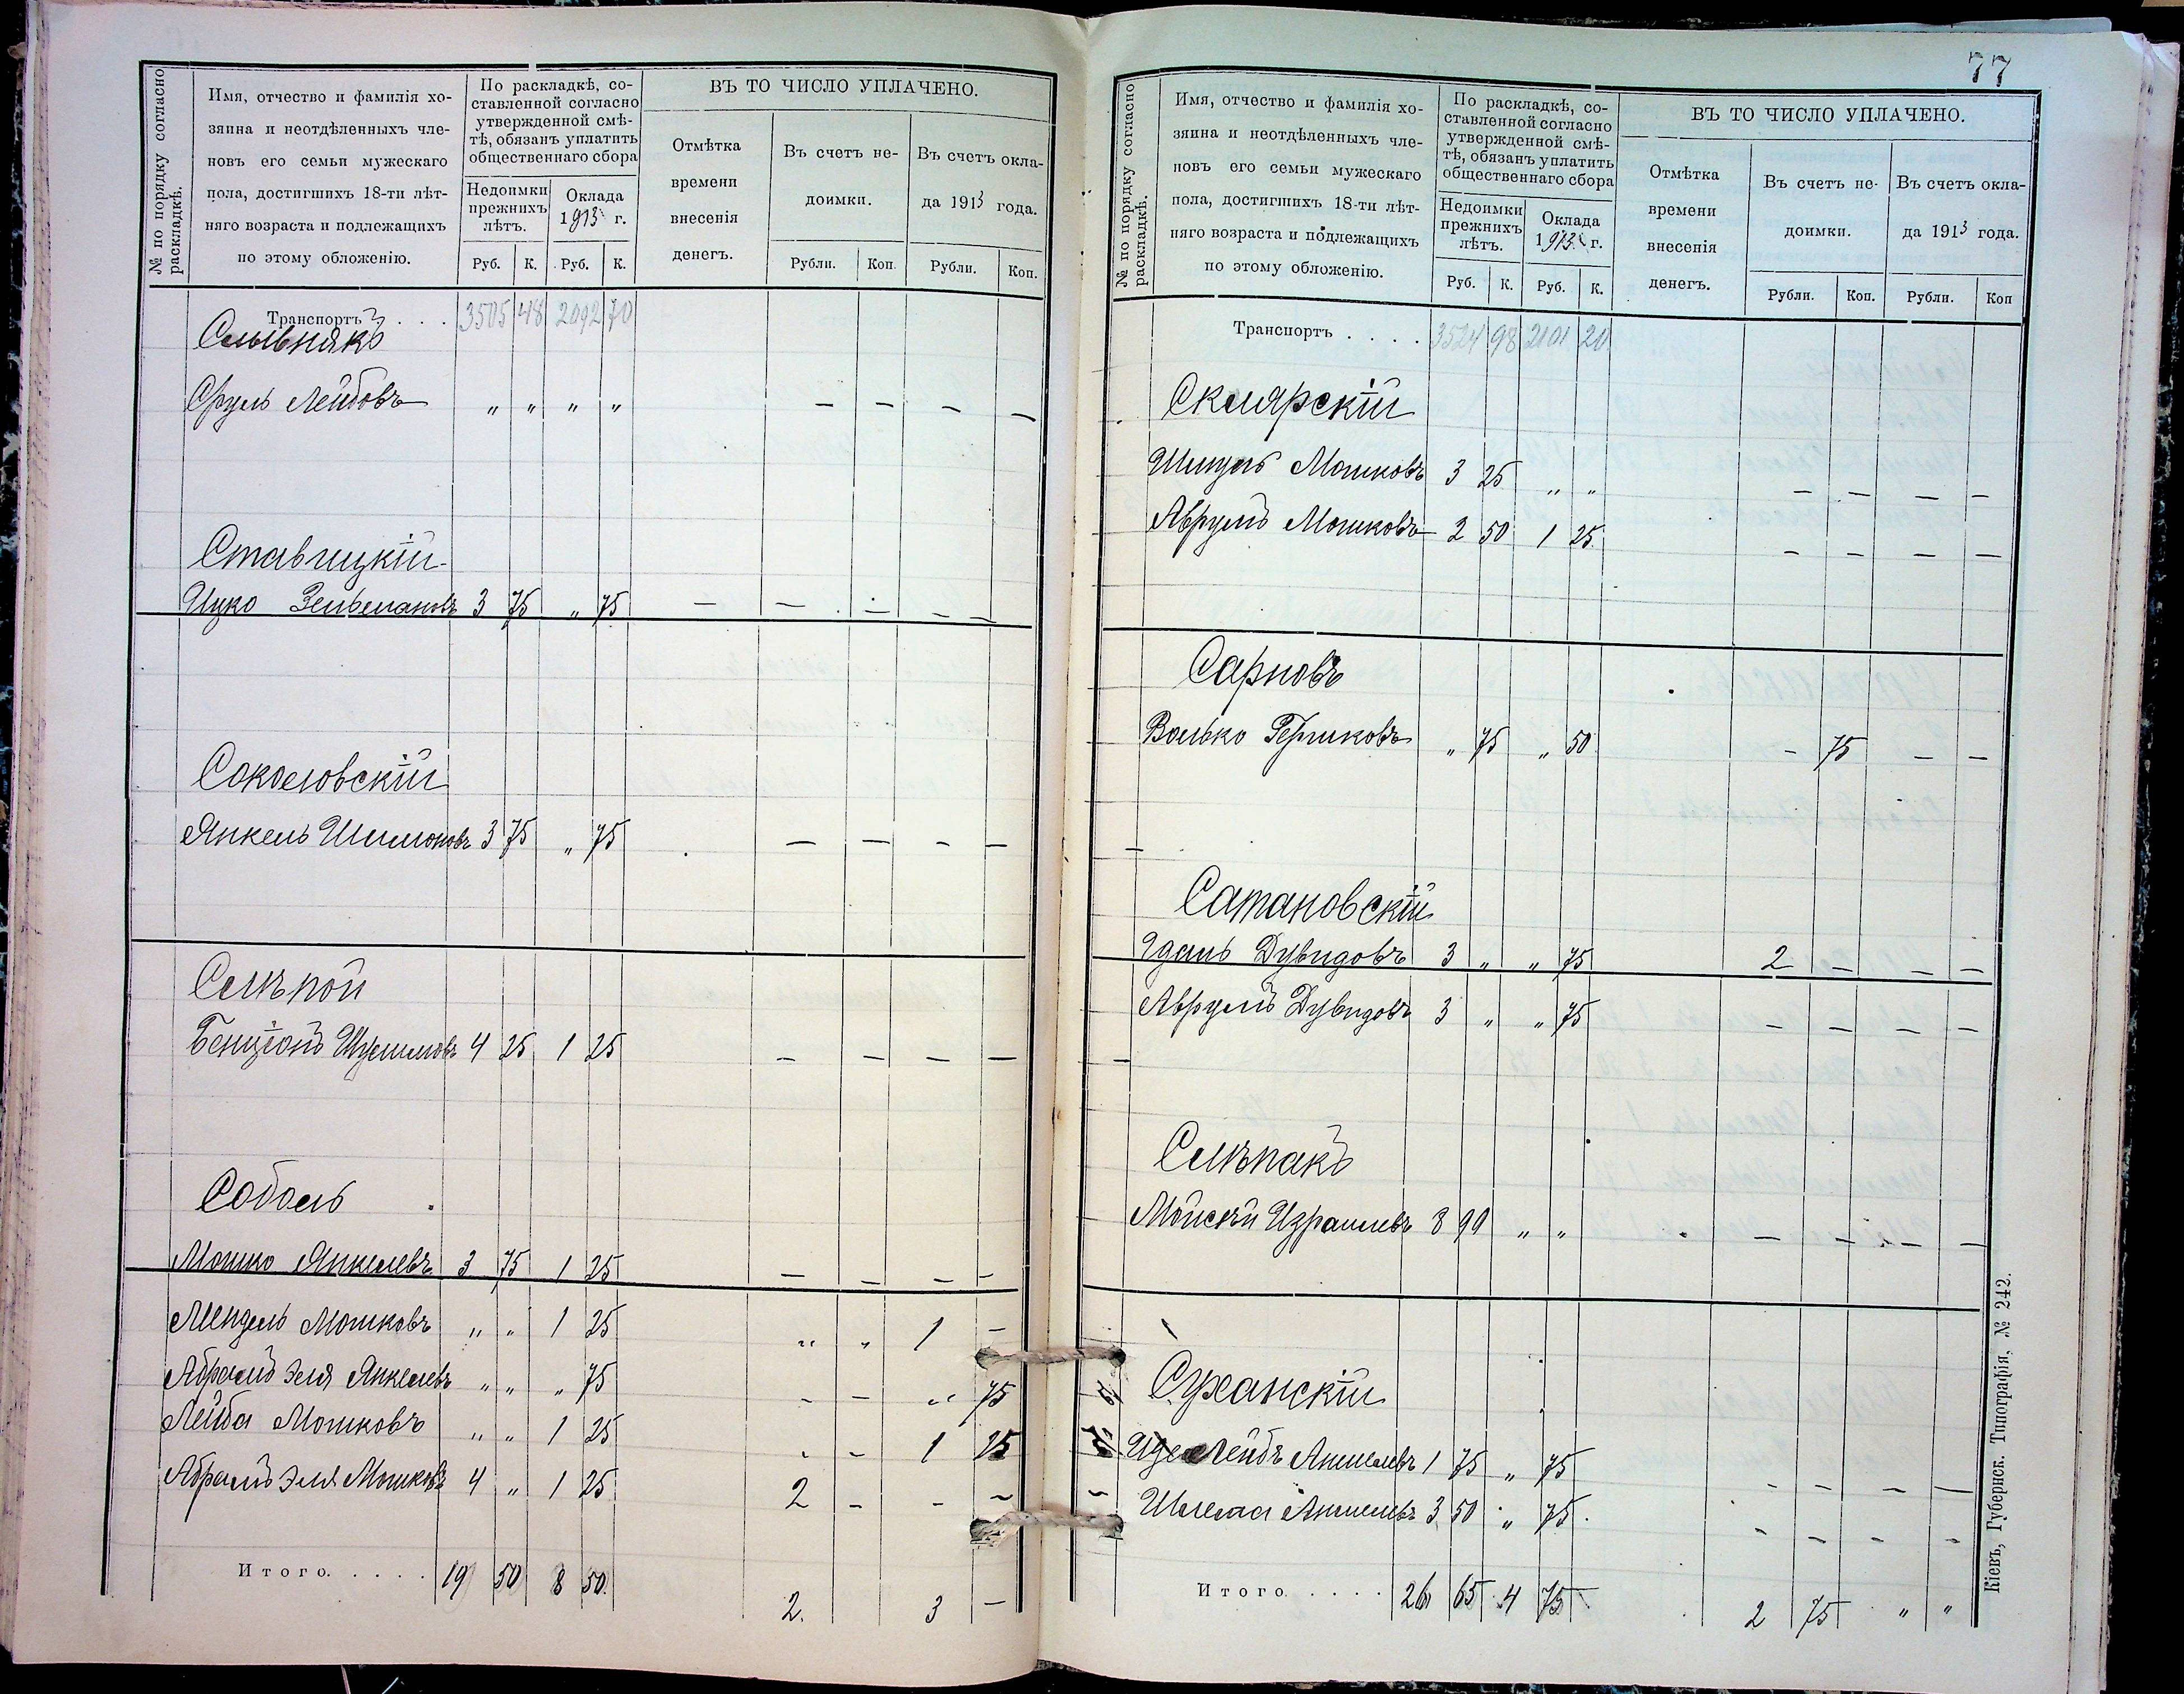 № по порядку согласно
раскладкѣ.
Имя, отчество и фамилія хо-
зяина и неотдѣленныхъ чле-
новъ его семьи мужескаго
пола, достигшихъ 18-ти лѣт-
няго возраста и подлежащихъ
по этому обложенію.
По раскладкѣ, со-
ставленной согласно
утвержденной смѣ-
тѣ, обязанъ уплатить
общественнаго сбора
Недоимки
прежнихъ
лѣтъ.
Оклада
1913 г.
Руб. К. Руб. К.
ВЪ ТО ЧИСЛО УПЛАЧЕНО.
Отмѣтка
времени
внесенія
денегъ.
Въ счетъ не-
доимки.
Въ счетъ окла-
да 1913 года.
Рубли. Коп. Рубли. Коп.
Транспортъ . . . 3505 48 2092 70
Сруль Лейбовъ " " " " — — — —
Ставицкій
Ицко Зельмановъ 3 75 " 75 — — — — —
Соколовскій
Янкель Шимоновъ 3 75 " 75 — — — —
Слѣпой
Бенціонъ 4 25 1 25 — — — —
Соболь
Мошко Янкелевъ 3 75 1 25 — — — —
Мендель Мошковъ " " 1 25 " " 1 —
Абрамъ Эля Янкелевъ " " " 75 - — " 75
Лейба Мошковъ " " 1 25 - - 1 25
Абрамъ Эля Мошковъ 4 " 1 25 2 - - -
Итого. . . . . 19 50 8 50 2. 3 —
77
№ по порядку согласно
раскладкѣ.
Имя, отчество и фамилія хо-
зяина и неотдѣленныхъ чле-
новъ его семьи мужескаго
пола, достигшихъ 18-ти лѣт-
няго возраста и подлежащихъ
по этому обложенію.
По раскладкѣ, со-
ставленной согласно
утвержденной смѣ-
тѣ, обязанъ уплатить
общественнаго сбора
Недоимки
прежнихъ
лѣтъ.
Оклада
1913 г.
Руб. К. Руб. К.
ВЪ ТО ЧИСЛО УПЛАЧЕНО.
Отмѣтка
времени
внесенія
денегъ.
Въ счетъ не-
доимки.
Въ счетъ окла-
да 1913 года.
Рубли. Коп. Рубли. Коп
Транспортъ . . . . 3524 98 2101 20
Склярскій
Шмуль Мошковъ 3 25 " " — — — —
Аврумъ Мошковъ 2 50 1 25 — — — —
Сарновъ
Волько Гершковъ " 75 " 50 - 75 — —
Сатановскій
Удаль Дувидовъ 3 " " 75 2 — — —
Аврумъ Дувидовъ 3 " " 75 — — — —
Слѣпакъ
Мойсѣй Израилевъ 8 90 " " — — — —
Суханскій
Лейбъ Аншелевъ 1 75 " 75 - - — —
Шлема Аншелевъ 3 50 " 75 - - - -
Итого. . . . . 26 65 4 75 2 75 " "
Кіевъ, Губернск. Типографія, № 242.